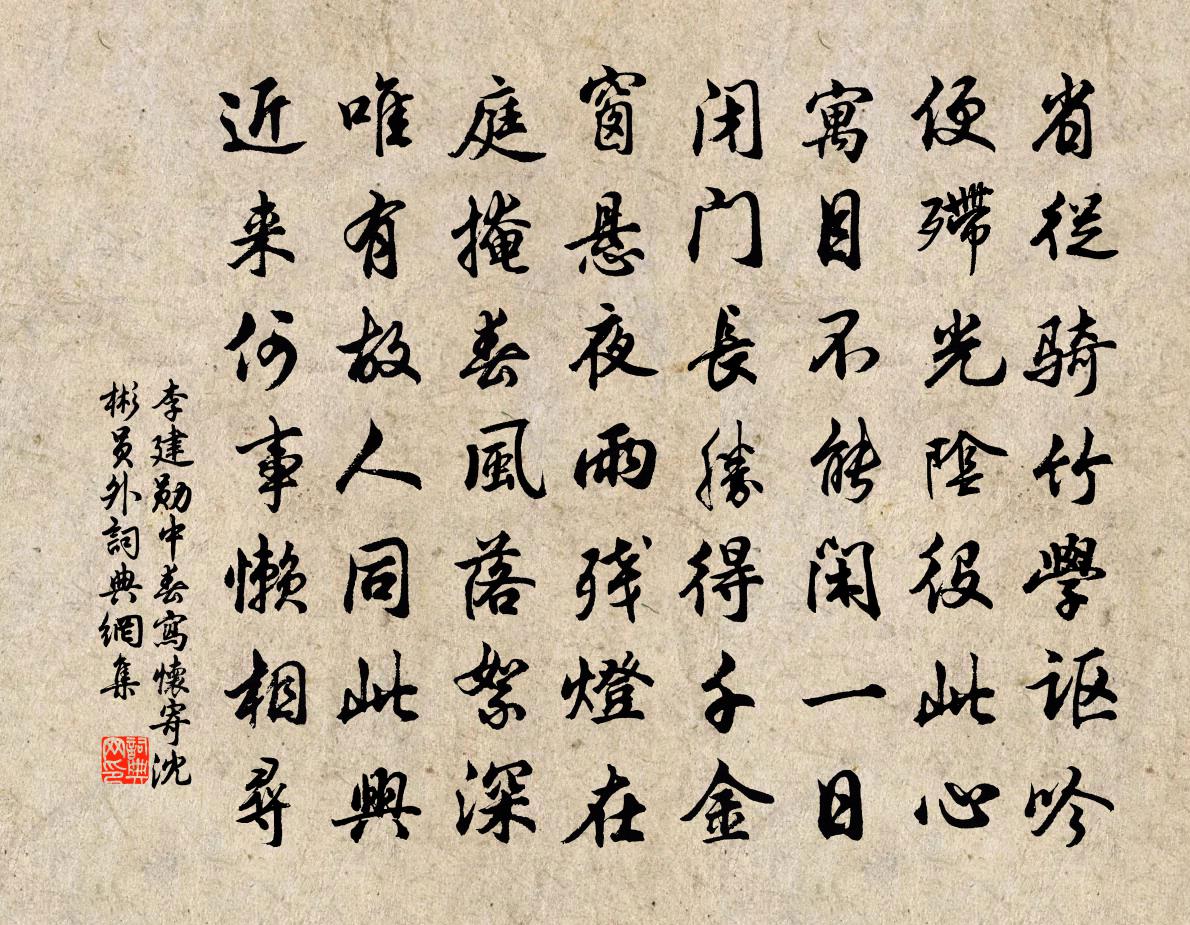 省從騎竹學謳吟
便殢光陰役此心
寓目不能閑一日
闭门長勝得千金
窗悬夜雨残燈在
庭掩春風落絮深
唯有故人同此興
近来何事懒相尋
李建勋中春寫懷寄沈
彬员外詞典網集
詞典
网印